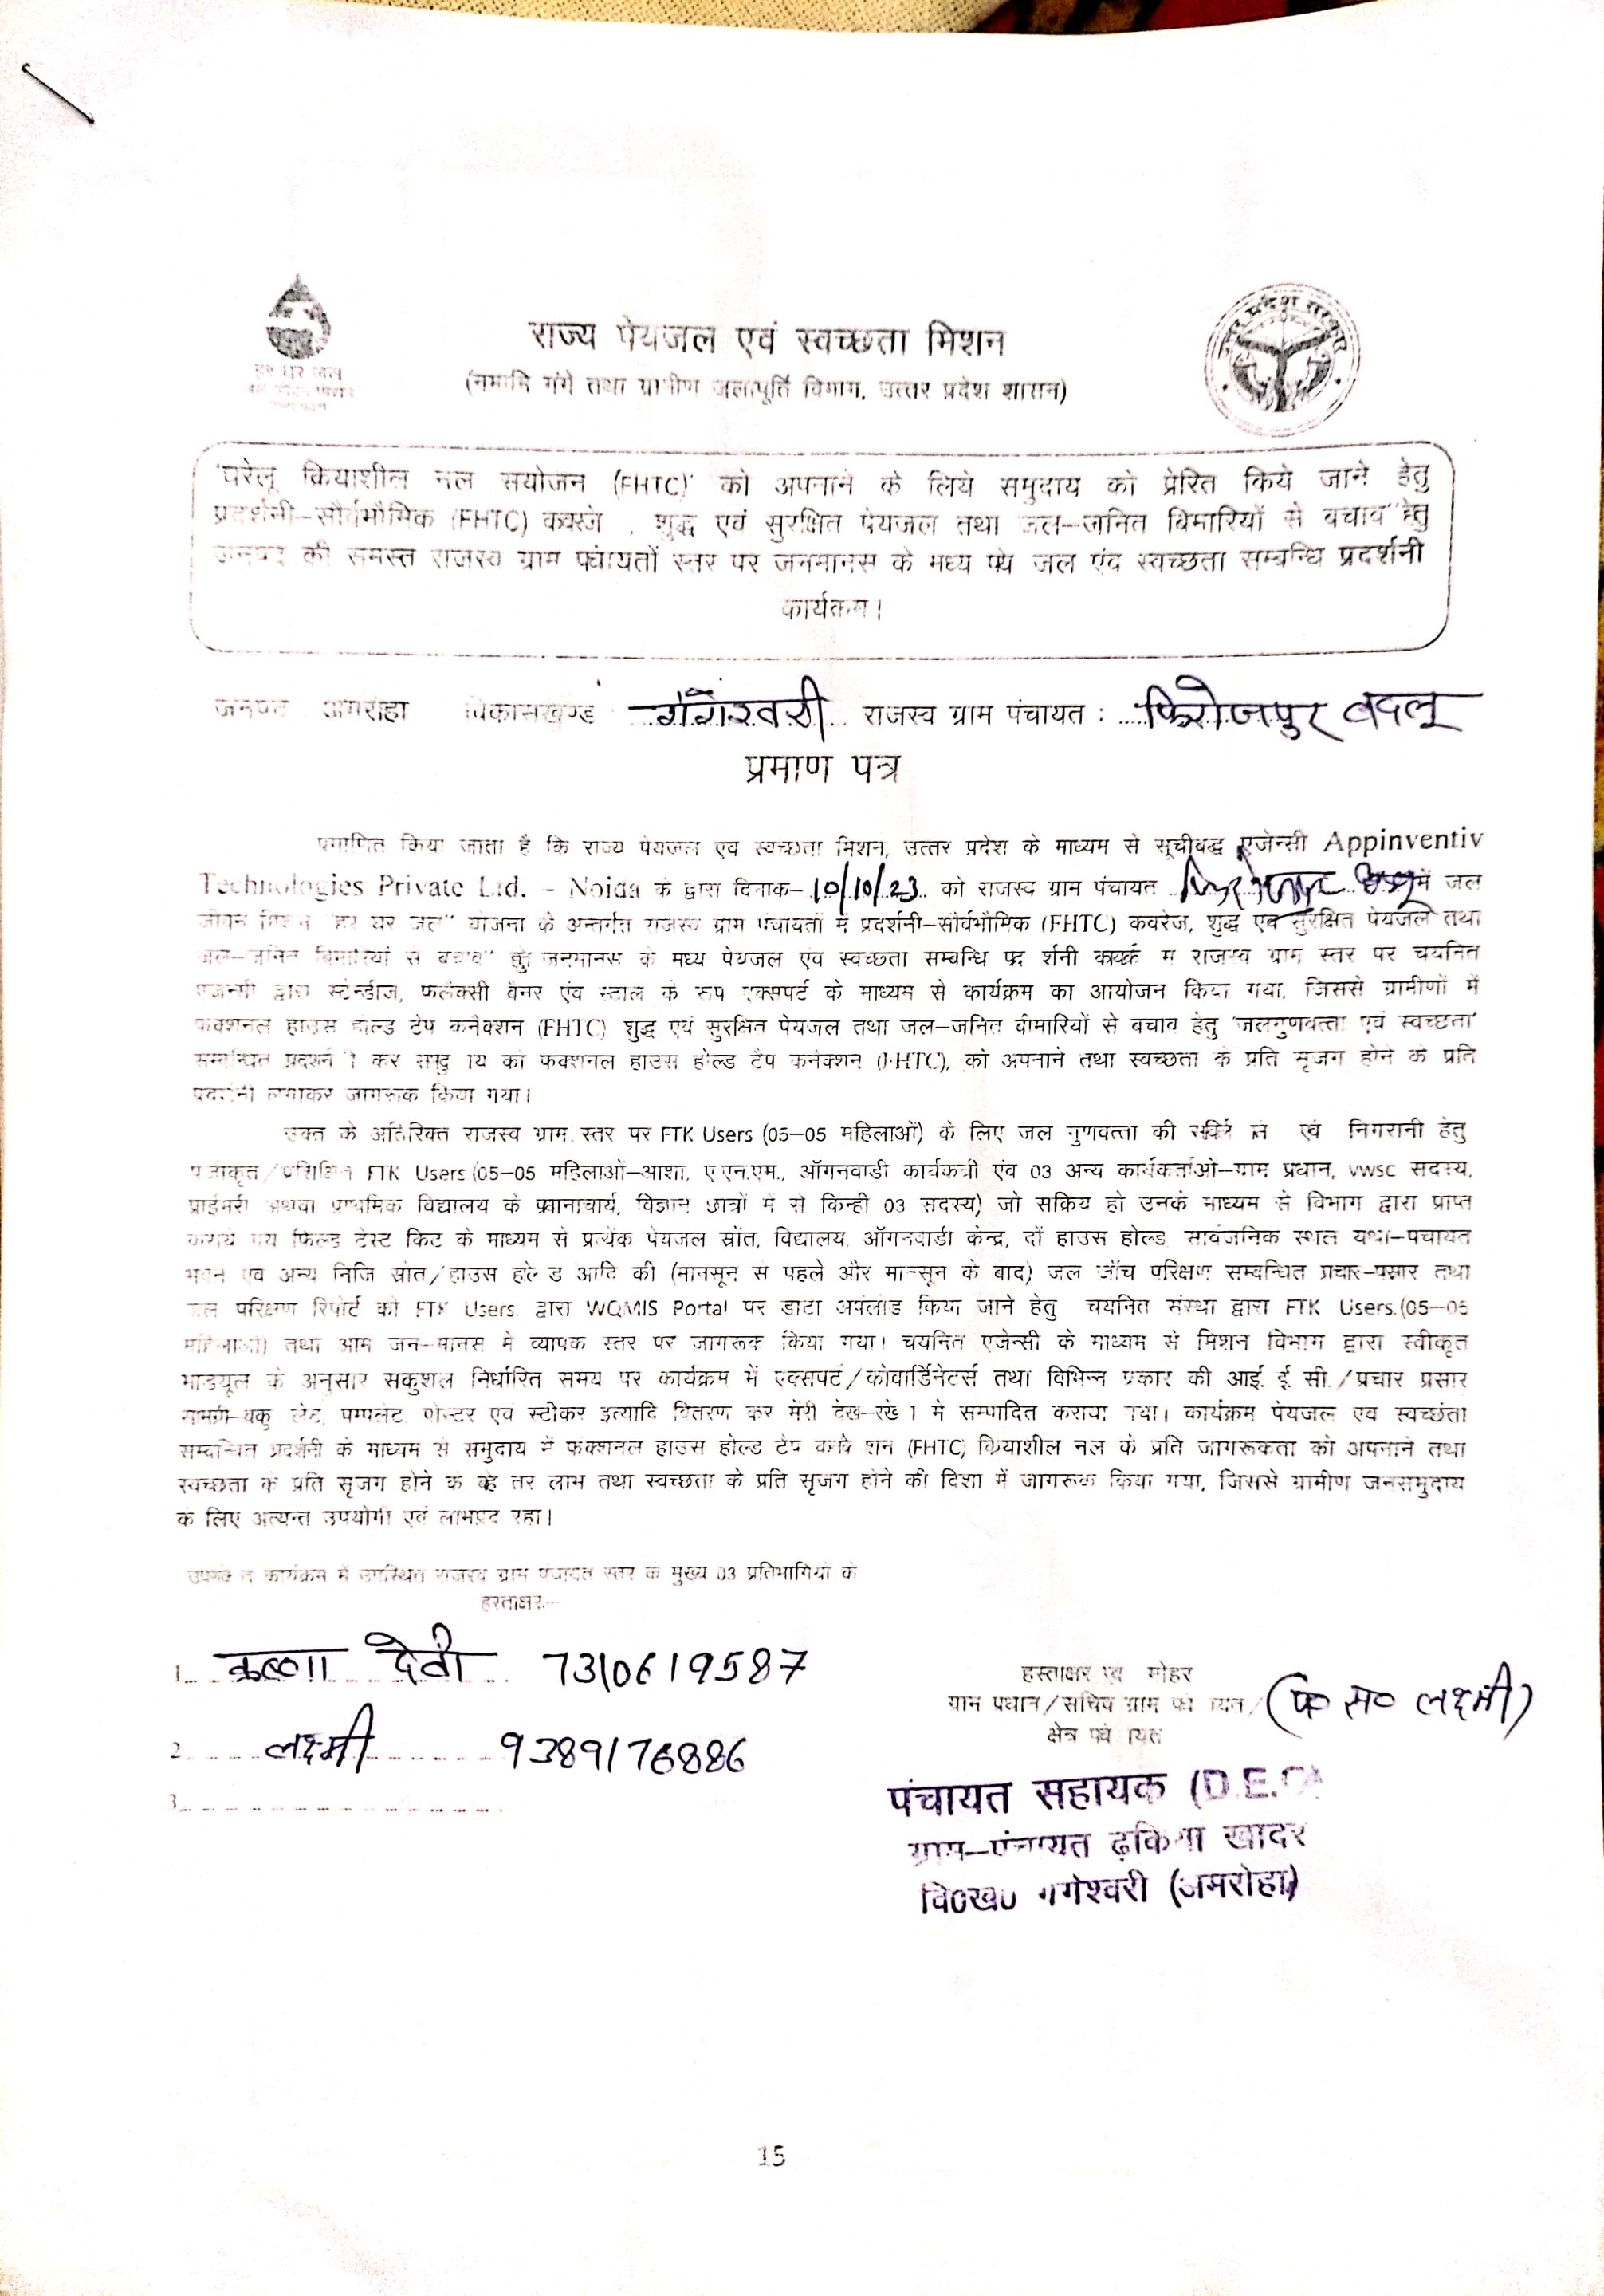 हर घर जल
उत्तर प्रदेश सरकार
राज्य पेयजल एवं स्वच्छता मिशन
(नमामि गंगे तथा ग्रामीण जलापूर्ति विभाग, उत्तर प्रदेश शासन)
'घरेलू क्रियाशील नल सयोजन (FHTC)' को अपनाने के लिये समुदाय को प्रेरित किये जाने हेतु
प्रदर्शनी–सौर्वभौमिक (FHTC) कवरेज , शुद्ध एवं सुरक्षित पेयजल तथा जल–जनित विमारियों से वचाव" हेतु
जनपद की समस्त राजस्व ग्राम पंचायतों स्तर पर जनमानस के मध्य पेय जल एंव स्वच्छता सम्बन्धि प्रदर्शनी
कार्यकम।
जनपद अमरोहा विकासखण्ड गंगेश्वरी राजस्व ग्राम पंचायत : फिरोजपुर बदलू
प्रमाण पत्र
प्रमाणित किया जाता है कि राज्य पेयजल एव स्वच्छता मिशन, उत्तर प्रदेश के माध्यम से सूचीबद्ध एजेन्सी Appinventiv
Technologies Private Ltd. - Noida के द्वारा दिनाक- 10/10/23 को राजस्व ग्राम पंचायत में जल
जीवन मिशन "हर घर जल" योजना के अन्तर्गत राजस्व ग्राम पंचायतों में प्रदर्शनी–सौर्वभौमिक (FHTC) कवरेज, शुद्ध एवं सुरक्षित पेयजल तथा
जल–जनित बिमारियां से बचाव" हेतु जनमानस के मध्य पेयजल एंव स्वच्छता सम्बन्धि राजस्व ग्राम स्तर पर चयनित
एजेन्सी द्वारा स्टेन्डीज, फलैक्सी वैनर एंव स्टाल के रुप एक्सपर्ट के माध्यम से कार्यक्रम का आयोजन किया गया, जिससे ग्रामीणों में
फंक्शनल हाउस होल्ड टेप कनैक्शन (FHTC) शुद्ध एवं सुरक्षित पेयजल तथा जल–जनित वीमारियों से बचाव हेतु 'जलगुणवत्ता एवं स्वच्छता'
सम्बन्धित कर का फंक्शनल हाउस होल्ड टैप कनेक्शन (FHTC), को अपनाने तथा स्वच्छता के प्रति सृजग होने के प्रति
प्रदर्शनी लगाकर जागरूक किया गया।
उक्त के अतिरिक्त राजस्व ग्राम स्तर पर FTK Users (05–05 महिलाओं) के लिए जल गुणवत्ता की एवं निगरानी हेतु
पंजीकृत/प्रशिक्षित FTK Users (05–05 महिलाओं–आशा, ए.एन.एम., ऑगनवाड़ी कार्यकत्री एंव 03 अन्य कार्यकर्ताओ–ग्राम प्रधान, vwsc सदस्य,
प्राईमरी अथवा प्राथमिक विद्यालय के प्रधानाचार्य, विज्ञान छात्रों में से किन्ही 03 सदस्य) जो सक्रिय हो उनके माध्यम से विभाग द्वारा प्राप्त
कराये गये फिल्ड टेस्ट किट के माध्यम से प्रत्येंक पेयजल स्रोंत, विद्यालय, ऑगनवाड़ी केन्द्र, दों हाउस होल्ड सार्वजनिक स्थल यथा–पंचायत
भवन एव अन्य निजि स्रोत/हाउस होल्ड आदि की (मानसून से पहले और मानसून के बाद) जल जॉच परिक्षण सम्बन्धित प्रचार–प्रसार तथा
जल परिक्षण रिपोर्ट को FTK Users. द्वारा WQMIS Portal पर डाटा अपलोड किया जाने हेतु चयनित संस्था द्वारा FTK Users.(05–05
महिलाओं) तथा आम जन–मानस मे व्यापक स्तर पर जागरूक किया गया। चयनित एजेन्सी के माध्यम से मिशन विभाग द्वारा स्वीकृत
माडयूल के अनुसार सकुशल निर्धारित समय पर कार्यक्रम में एक्सपर्ट/कोवार्डिनेटर्स तथा विभिन्न प्रकार की आई. ई. सी./प्रचार प्रसार
सामग्री पम्पलेट, पोस्टर एवं स्टीकर इत्यादि वितरण कर मेंरी देख–रेख में सम्पादित कराया गया। कार्यक्रम पेयजल एव स्वच्छंता
सम्बन्धित प्रदर्शनी के माध्यम से समुदाय में फंक्शनल हाउस होल्ड टेप (FHTC) कियाशील नल के प्रति जागरूकता को अपनाने तथा
स्वच्छता के प्रति सृजग होने के लाभ तथा स्वच्छता के प्रति सृजग होने की दिशा में जागरूक किया गया, जिससे ग्रामीण जनसमुदाय
के लिए अत्यन्त उपयोगी एवं लाभप्रद रहा।
उपरोक्त कार्यक्रम में उपस्थित राजस्व ग्राम पंचायत स्तर के मुख्य 03 प्रतिभागियों के
हस्ताक्षर:–
1. देवी 7310619587
हस्ताक्षर एवं मोहर
ग्राम प्रधान/सचिव ग्राम पंचायत/ (पं० स० लक्ष्मी)
क्षेत्र पंचायत
2. लक्ष्मी 9389176886
3.
पंचायत सहायक (D.E.O)
ग्राम–पंचायत ढ़किया खादर
वि0ख0 गंगेश्वरी (अमरोहा)
15